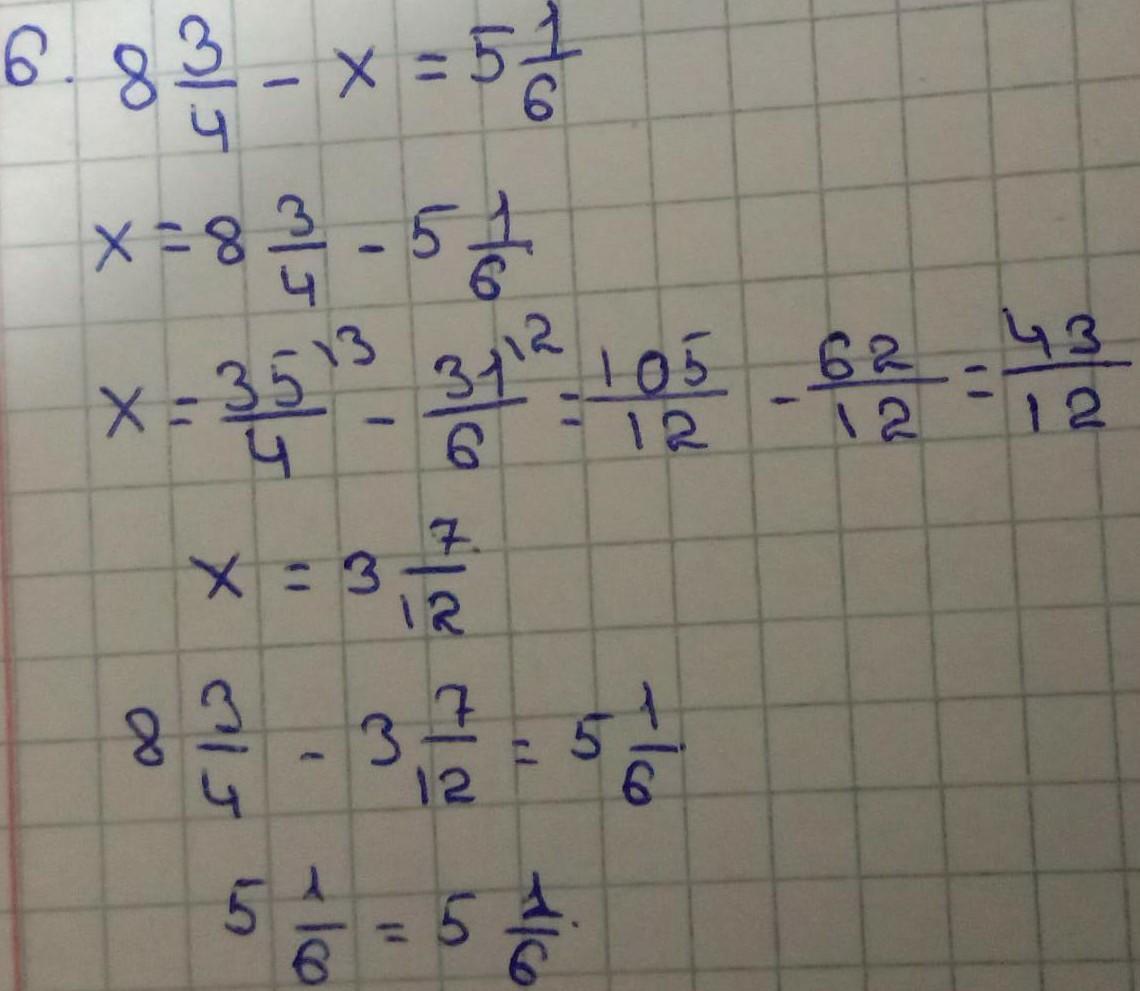 6. 8 3/4 - x = 5 1/6
x = 8 3/4 - 5 1/6
x = 35\3/4 - 31\2/6 = 105/12 - 62/12 = 43/12
x = 3 7/12
8 3/4 - 3 7/12 = 5 1/6
5 1/6 = 5 1/6.